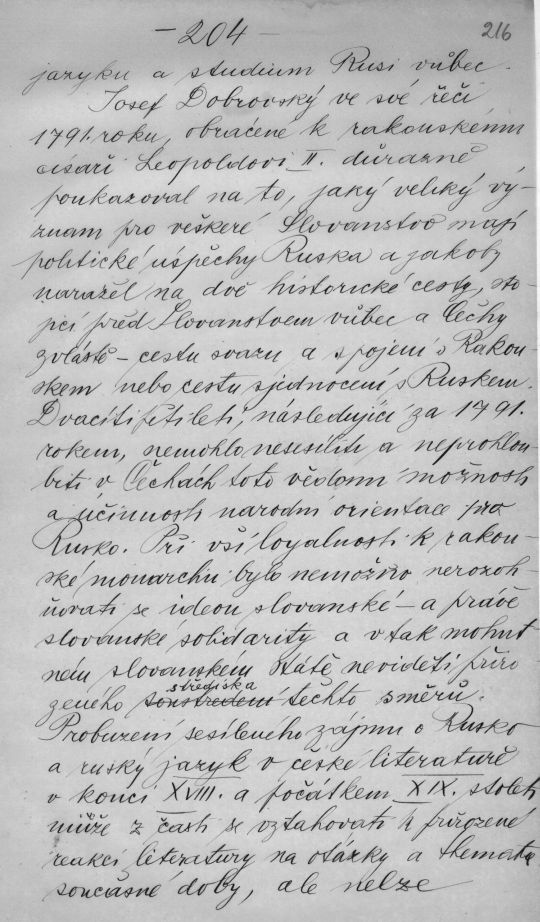 – 204 –
216
jazyku a studium Rusi vůbec.
Josef Dobrovský ve své řeči
1791. roku, obračené k rakouskému
cisaři Leopoldovi II. důrazně
poukazoval na to, jaký veliký vý-
znam pro veškeré Slovanstvo mají
politické úspěchy Ruska a jakoby
naražel na dvě historické cesty, sto-
jící před Slovanstvem vůbec a Čechy
zvláště – cestu svazu a spojení s Rakou-
skem nebo cestu sjednocení s Ruskem.
Dvacítipětiletí, následující za 1791.
rokem, nemohlo nesesíliti a neprohlou-
biti v Čechách toto vědomí možnosti
a účinnosti narodní orientace pro
Rusko. Při vší loyalnosti k rakou-
ské monarchii bylo nemožno nerozoh-
ňovati se ideou slovanské – a právě
slovanské solidarity a v tak mohut-
ném slovanském státě neviděti přiro-
zeného střediska soustředění těchto směrů.
Probuzení sesíleného zájmu o Rusko
a ruský jazyk v české literatuře
v konci XVIII. a počátkem XIX. století
může z části se vztahovati k přirozené
reakci literatury na otázky a themata
současné doby, ale nelze